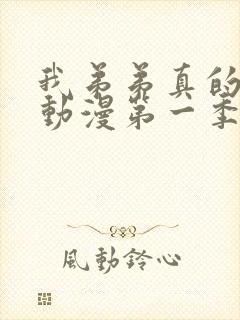 我弟弟真的
動漫第一季
風動鈴心